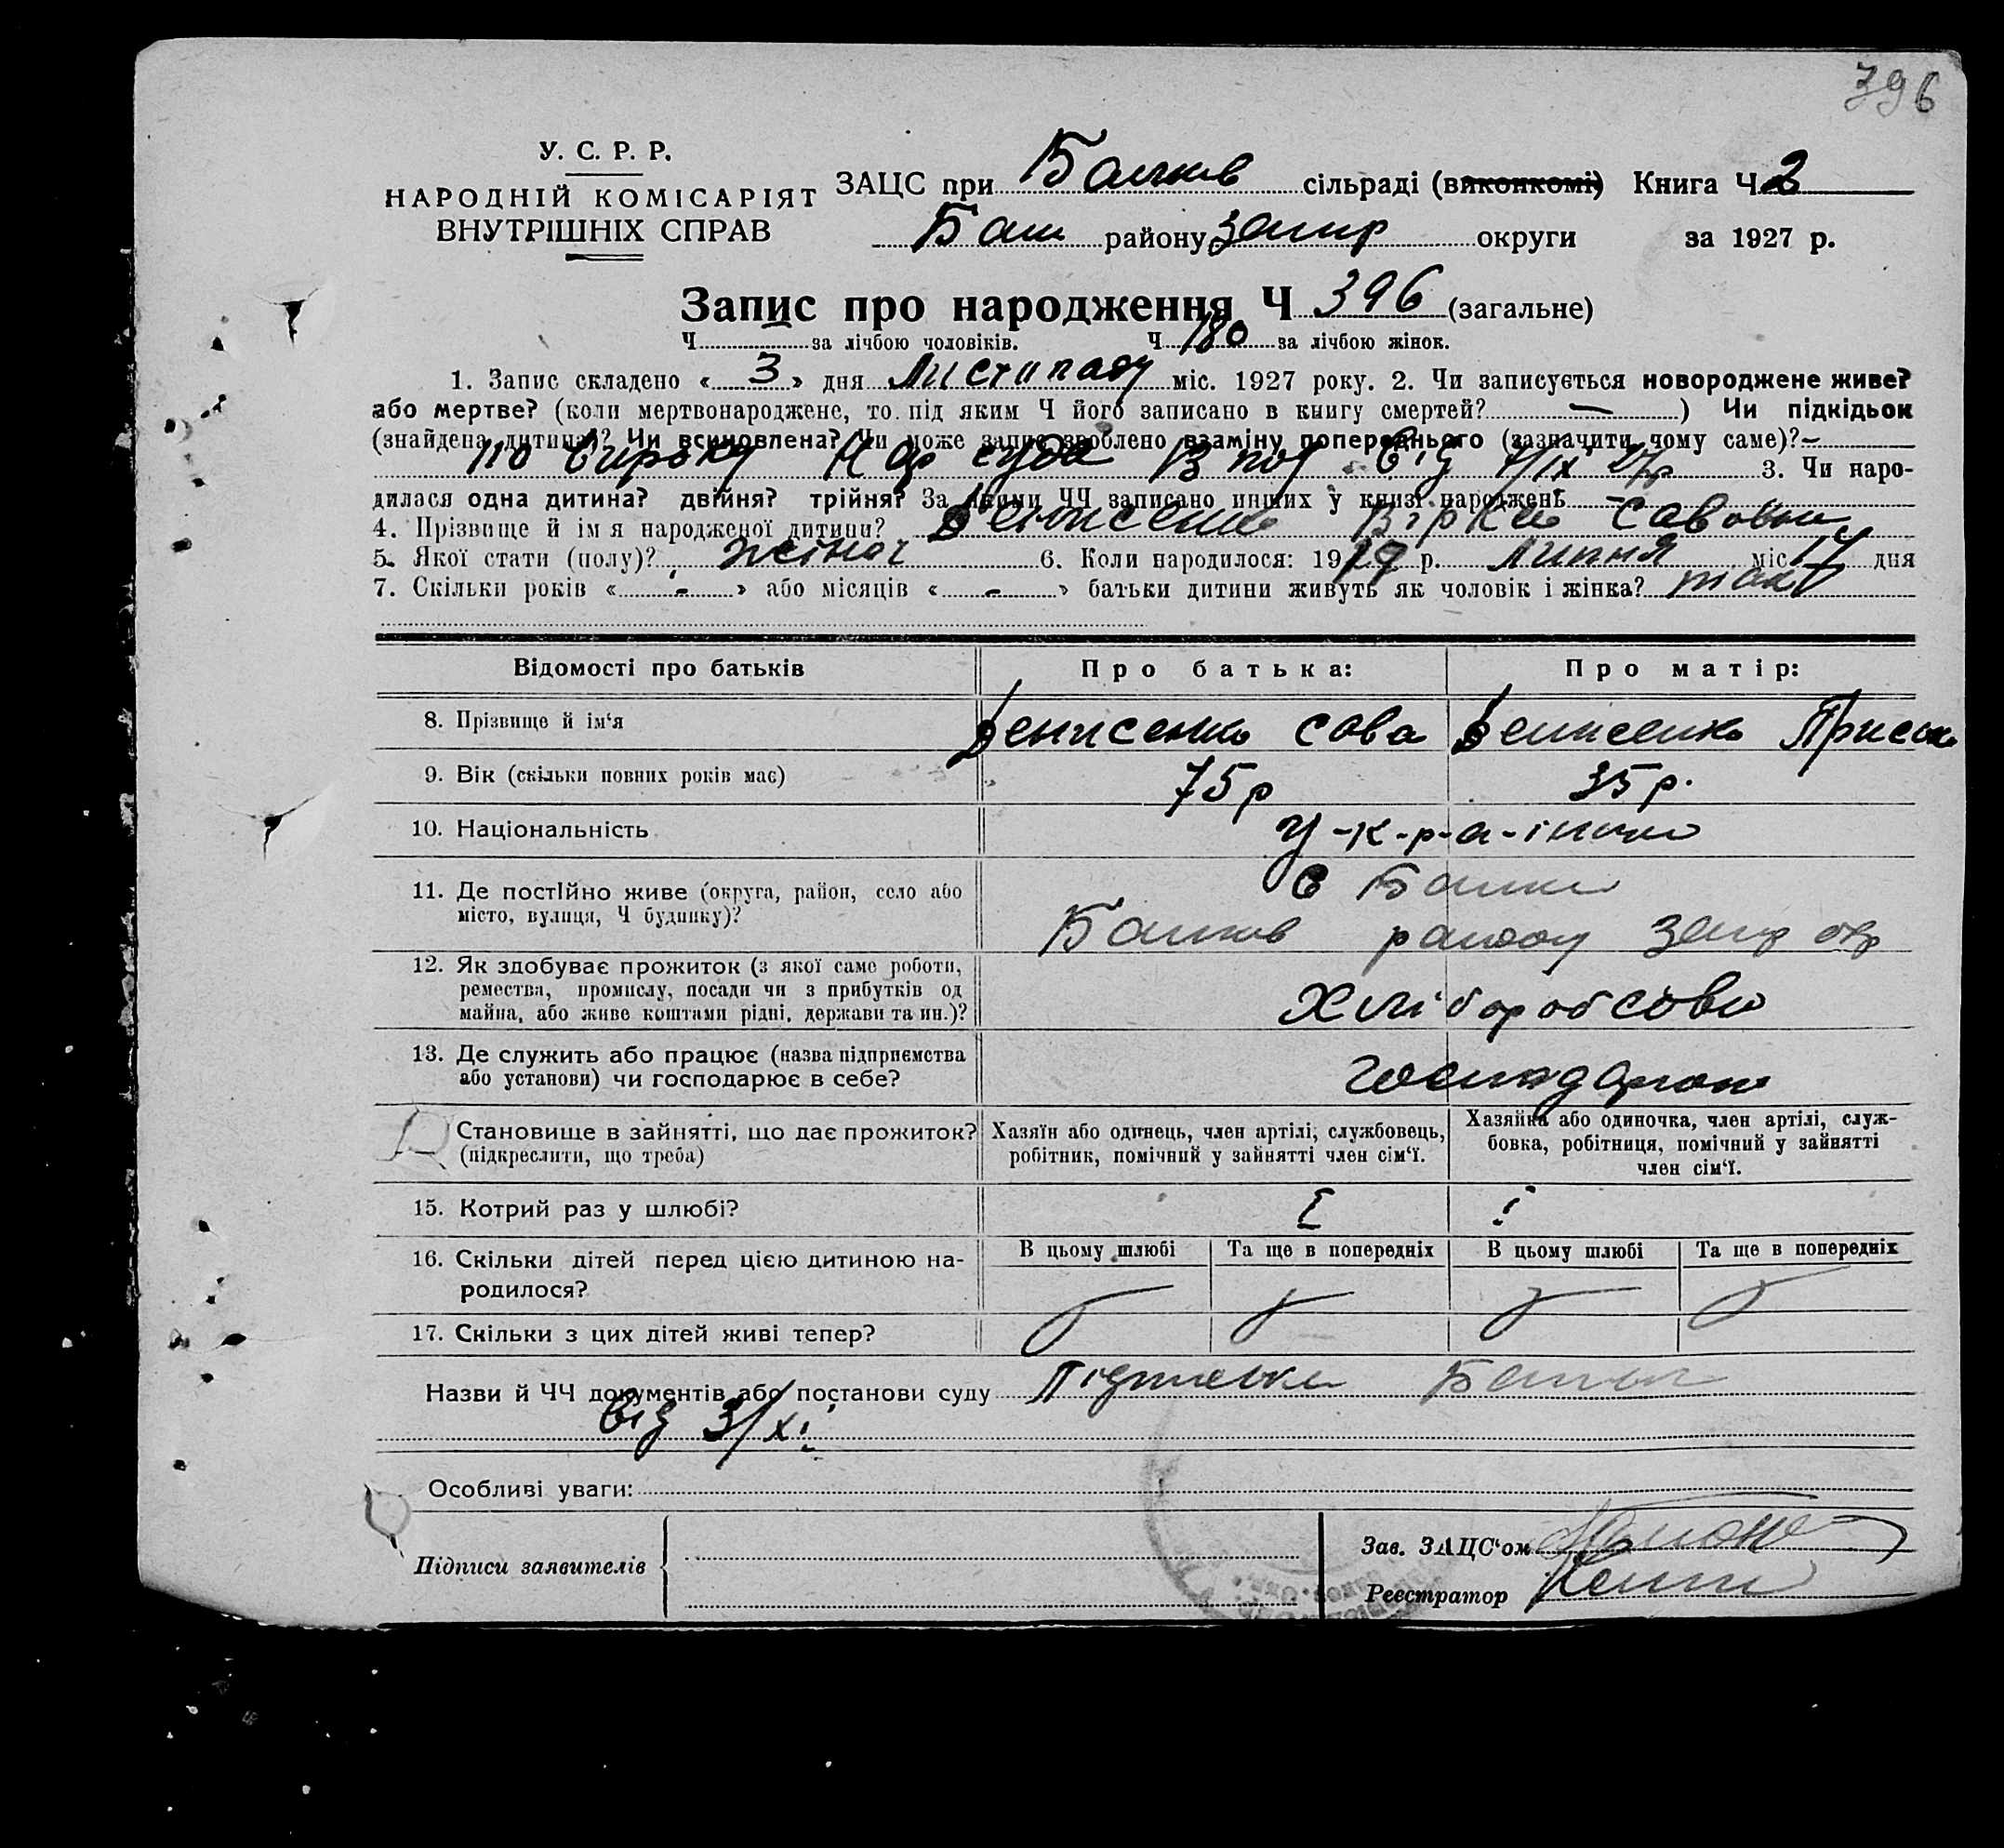 396
У. С. Р. Р.
НАРОДНІЙ КОМІСАРІЯТ
ВНУТРІШНІХ СПРАВ
ЗАЦС при Балків сільраді (виконкомі) Книга Ч 2
району Запор округи за 1927 р.
Запис про народження Ч 396 (загальне)
Ч — за лічбою чоловіків. Ч 180 за лічбою жінок.
1. Запис складено « 3 » дня Листопаду міс. 1927 року. 2. Чи записується новороджене живе?
або мертве? (коли мертвонароджене, то під яким Ч його записано в книгу смертей? — ) Чи підкідьок
(знайдена дитина)? Чи всиновлена? Чи може запис зроблено взаміну попереднього (зазначити чому саме)? —
по вироку Нар суда від 7/IX 27р 3. Чи наро-
дилася одна дитина? двійня? трійня? За якими ЧЧ записано инших у книзі народжень —
4. Прізвище й ім я народженої дитини? Денисенко Вірка Савовна
5. Якої стати (полу)? жіноч 6. Коли народилося: 19 р. липня міс 17 дня
7. Скільки років « - » або місяців « - » батьки дитини живуть як чоловік і жінка? так
Відомості про батьків Про батька: Про матір:
8. Прізвище й ім‘я Денисенко Сава Денисенко Приська
9. Вік (скільки повних років має) 75р 35р.
10. Національність у-к-р-а-їнці
11. Де постійно живе (округа, район, село або
місто, вулиця, Ч будинку)? с Балки
Балків району Запор окр
12. Як здобуває прожиток (з якої саме роботи,
ремества, промислу, посади чи з прибутків од
майна, або живе коштами рідні, держави та ин.)? Хліборобством
13. Де служить або працює (назва підприємства
або установи) чи господарює в себе? господарює
Становище в зайнятті, що дає прожиток?
(підкреслити, що треба)
Хазяїн або одинець, член артілі, службовець,
робітник, помічний у зайнятті член сім‘ї.
Хазяйка або одиночка, член артілі, служ-
бовка, робітниця, помічний у зайнятті
член сім‘ї.
15. Котрий раз у шлюбі? I I
16. Скільки дітей перед цією дитиною на-
родилося?
В цьому шлюбі Та ще в попередніх В цьому шлюбі Та ще в попередніх
17. Скільки з цих дітей живі тепер?
Назви й ЧЧ документів або постанови суду
від 3/XI
Особливі уваги:
Підписи заявителів
Зав. ЗАЦС‘ом
Реєстратор